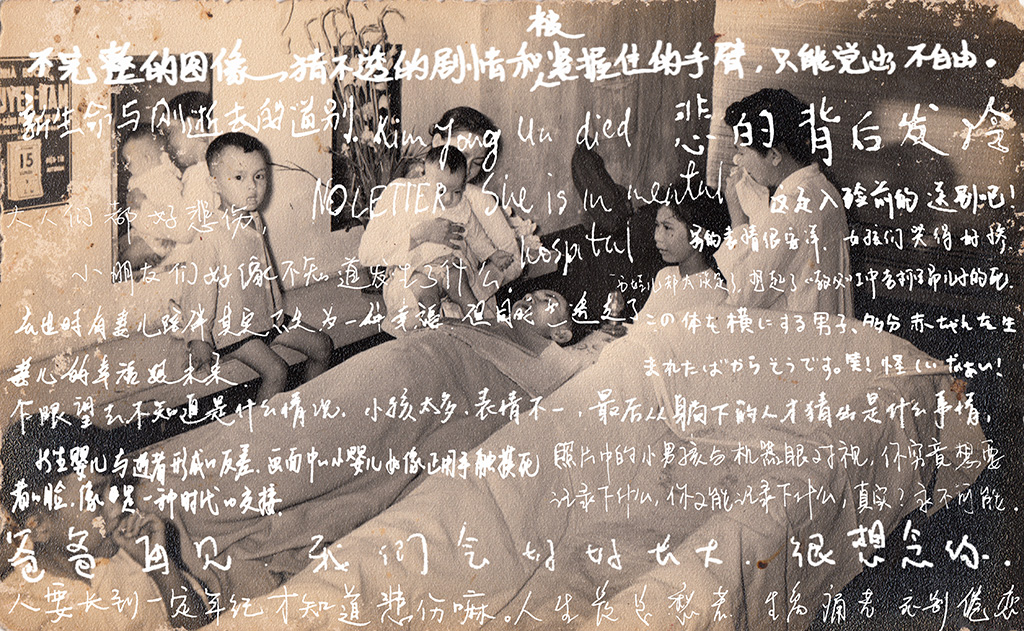 被
不完整的图像，猜不透的剧情和握住的手臂，只能觉出不自由。
新生命与刚逝去的道别。
Kim Jong Un died
悲的背后发冷
15
NO LETTER She is in mental
hospital
这是入殓前的送别吧！
大人们都好悲伤，
男的表情很安详，女孩们笑得好惨
小朋友们好像不知道发生了什么
去世时有妻儿陪伴其实不失为一种幸福，但同时也透支了
妻儿的幸福跟未来
この体を横にする男子、多分赤ちゃんを生
まれたばからそうです。笑！怪しいだぁい！
乍眼望去不知道是什么情况，小孩太多，表情不一，最后从躺下的人才猜出是什么事情，
新生婴儿与逝者形成的反差，画面中小婴儿好像正用手触摸死
者的脸，像是一种时代的交接。
照片中的小男孩与机器眼对视，你究竟想要
记录下什么，你又能记录下什么，真实？永不可能。
爸爸再见，我们会好好长大，很想念你。
人要长到一定年纪才知道悲伤嘛。人生总总愁煮 生离痛煮 死别